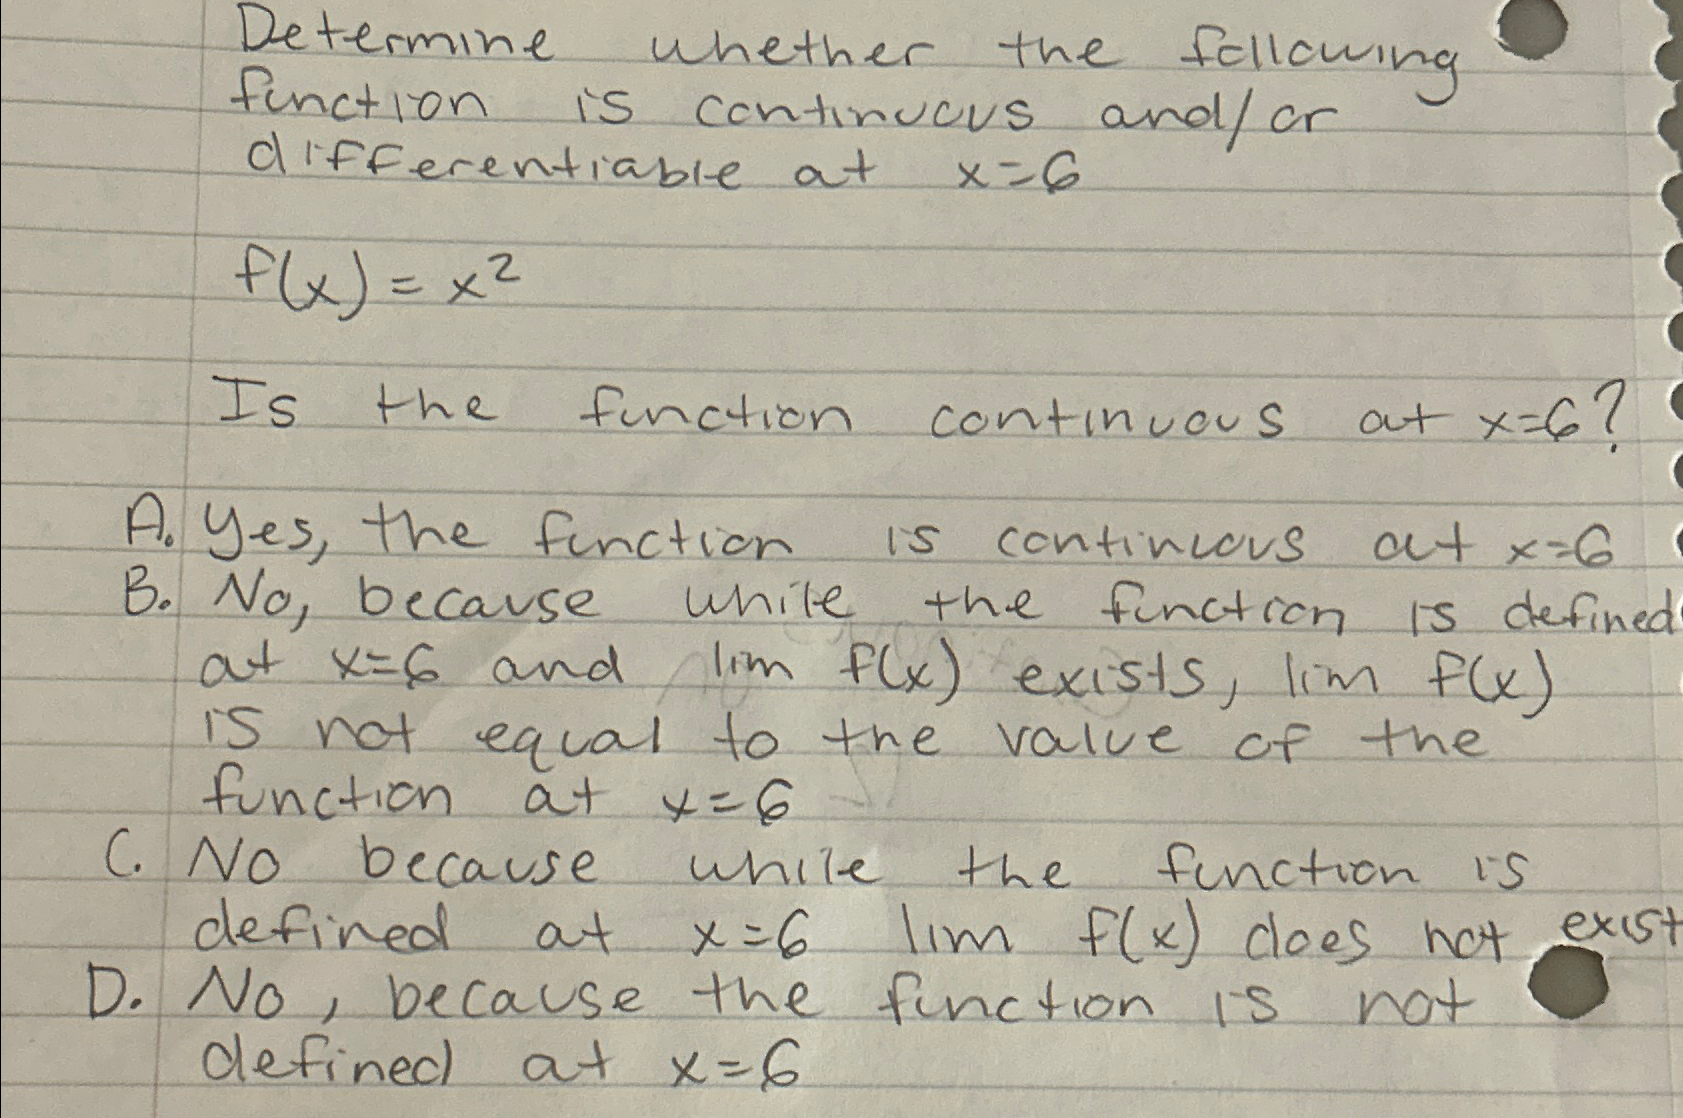 Determine whether the following
function is continuous and/or
differentiable at x=6
f(x) = x²
Is the function continuous at x=6?
A. Yes, the function is continuous at x=6
B. No, because while the function is defined
at x=6 and lim f(x) exists, lim f(x)
is not equal to the value of the
function at x=6
C. No because while the function is
defined at x=6 lim f(x) does not exist
D. No, because the function is not
defined at x=6